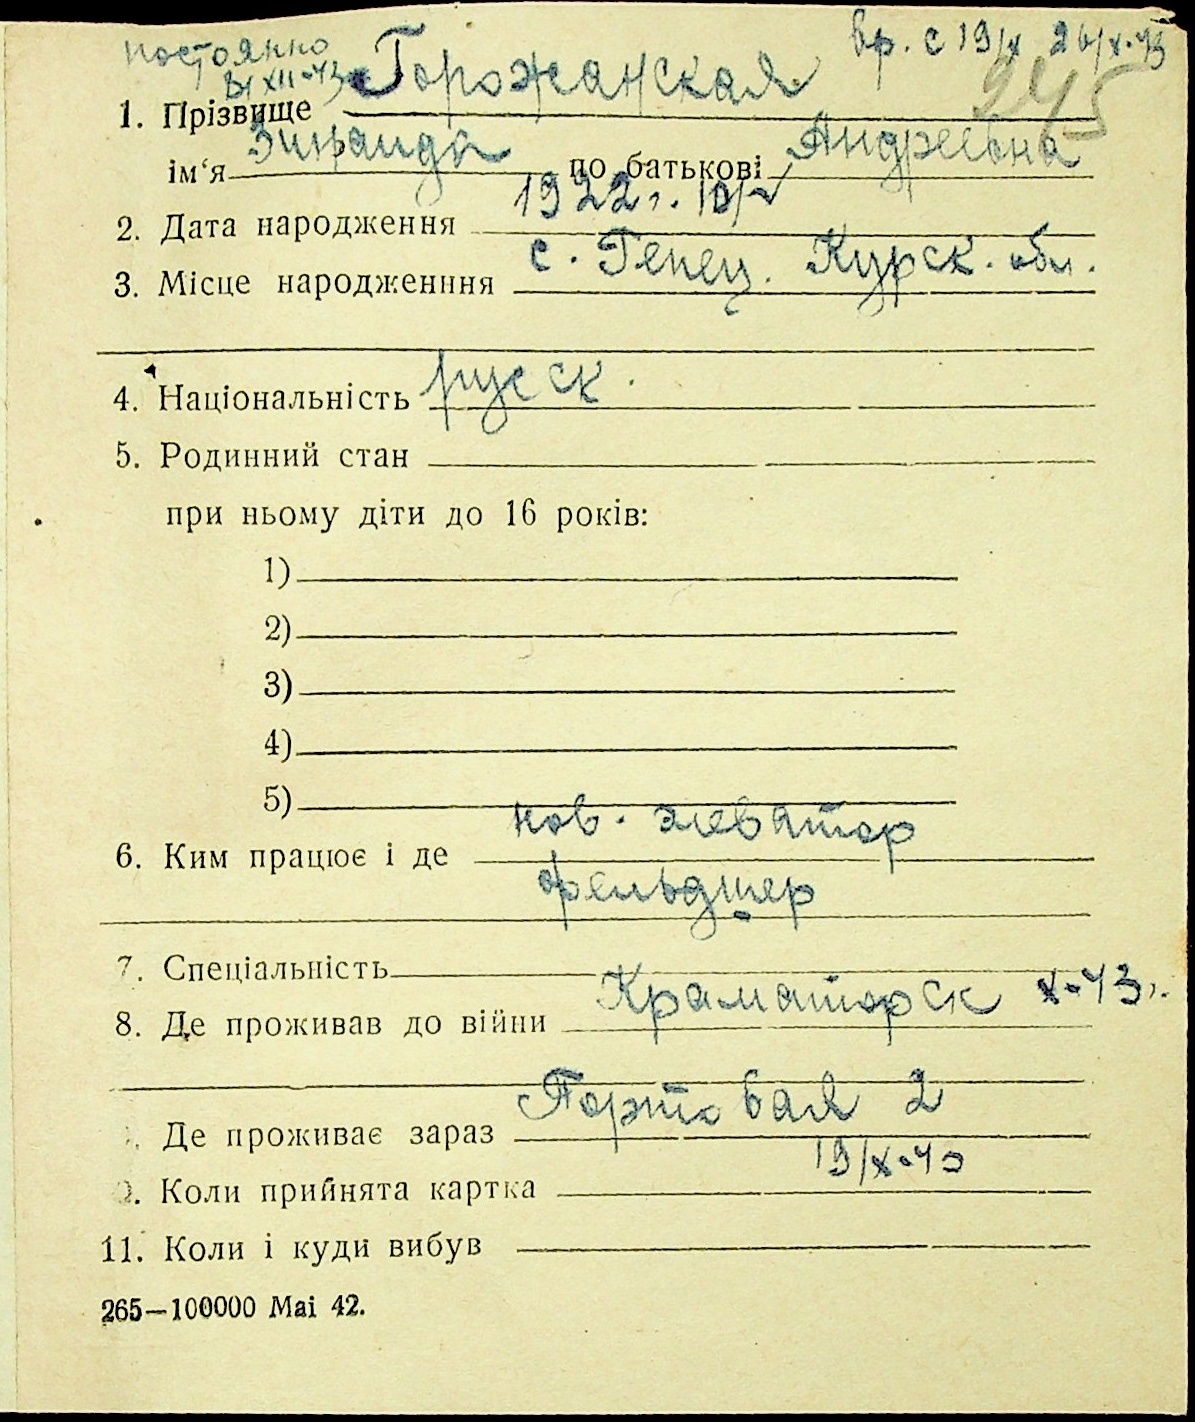 постоянно вр. с 19/X 26/X-43
31 XII-43 Горожанская 245
1. Прізвище
Зинаида Андреевна
ім‘я по батькові
1922 г. 10/V
2. Дата народження
с. Генец. Курск. обл.
3. Місце народженння
4. Національність русск.
5. Родинний стан
при ньому діти до 16 років:
1)
2)
3)
4)
5)
нов. элеватор
6. Ким працює і де
фельдшер
7. Спеціальність
Краматорск X-43 г.
8. Де проживав до війни
Портовая 2
Де проживає зараз
19/X-43
Коли прийнята картка
11. Коли і куди вибув
265—100000 Mai 42.